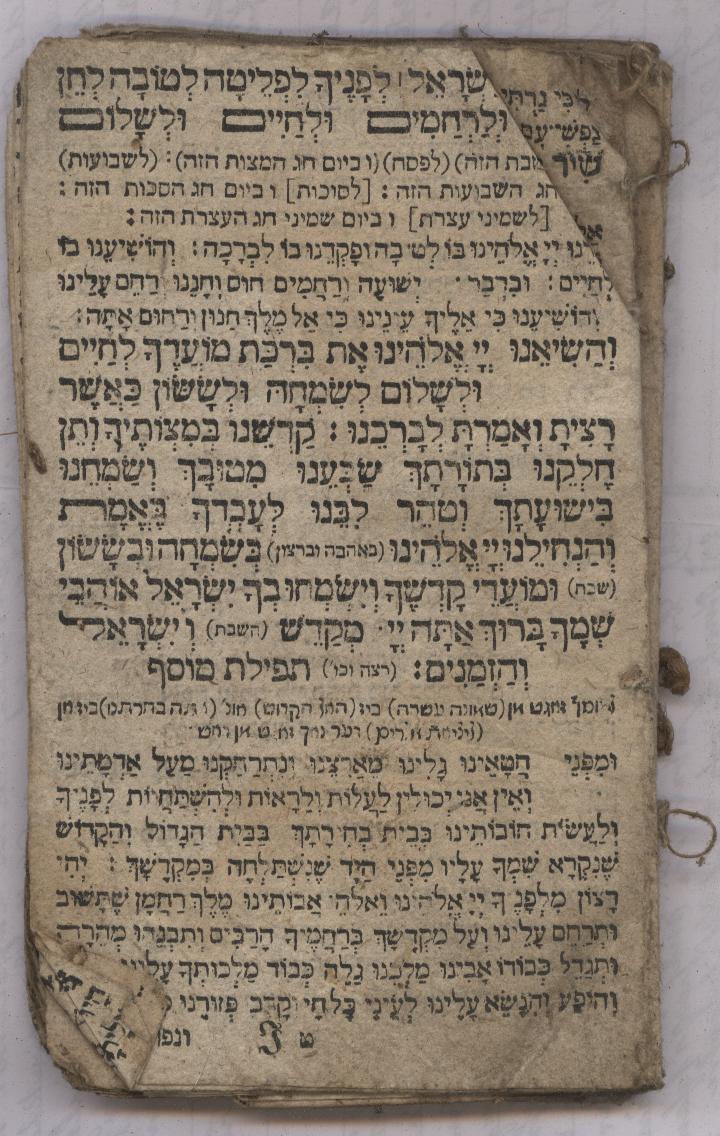 ישְׂרָאֵל לְפָנֶיךָ לִפְלֵיטָה לְטוֹבָה לְחֵן
וּלְרַחֲמִים וּלְחַיִּים וּלְשָׁלוֹם
הזה) (לפסח) (וביום חג המצות הזה): (לשבועות)
חג השבועות הזה: [לסוכות] וביום חג הסכות הזה:
[לשמיני עצרת] וביום שמיני חג העצרת הזה:
יְיָ אֱלֹהֵינוּ בּוֹ לְטוֹבָה וּפָקְדֵנוּ בוֹ לִבְרָכָה: וְהוֹשִׁיעֵנוּ בוֹ
לְחַיִּים: וּבִדְבַר יְשׁוּעָה וְרַחֲמִים חוּס וְחָנֵּנוּ וְרַחֵם עָלֵינוּ
וְהוֹשִׁיעֵנוּ כִּי אֵלֶיךָ עֵינֵינוּ כִּי אֵל מֶלֶךְ חַנּוּן וְרַחוּם אָתָּה:
וְהַשִּׂיאֵנוּ יְיָ אֱלֹהֵינוּ אֶת בִּרְכַּת מוֹעֲדֶךָ לְחַיִּים
וּלְשָׁלוֹם לְשִׂמְחָה וּלְשָׂשׂוֹן כַּאֲשֶׁר
רָצִיתָ וְאָמַרְתָּ לְבָרְכֵנוּ: קַדְּשֵׁנוּ בְּמִצְוֹתֶיךָ וְתֵן
חֶלְקֵנוּ בְּתוֹרָתֶךָ שַׂבְּעֵנוּ מִטּוּבָךְ וְשַׂמְּחֵנוּ
בִּישׁוּעָתֶךָ וְטַהֵר לִבֵּנוּ לְעָבְדְּךָ בֶּאֱמֶת
וְהַנְחִילֵנוּ יְיָ אֱלֹהֵינוּ (באהבה וברצון) בְּשִׂמְחָה וּבְשָׂשׂוֹן
(שבת) וּמוֹעֲדֵי קָדְשֶׁךָ וְיִשְׂמְחוּ בְךָ יִשְׂרָאֵל אוֹהֲבֵי
שְׁמֶךָ בָּרוּךְ אַתָּה יְיָ מְקַדֵּשׁ (השבת) וְיִשְׂרָאֵל
וְהַזְּמַנִּים: (רצה וכו') תפילת מוסף
וּמִפְּנֵי חֲטָאֵינוּ גָּלִינוּ מֵאַרְצֵנוּ וְנִתְרַחַקְנוּ מֵעַל אַדְמָתֵינוּ
וְאֵין אָנוּ יְכוֹלִין לַעֲלוֹת וְלֵרָאוֹת וּלְהִשְׁתַּחֲווֹת לְפָנֶיךָ
וְלַעֲשׂוֹת חוֹבוֹתֵינוּ בְּבֵית בְּחִירָתֶךָ בַּבַּיִת הַגָּדוֹל וְהַקָּדוֹשׁ
שֶׁנִּקְרָא שִׁמְךָ עָלָיו מִפְּנֵי הַיָּד שֶׁנִּשְׁתַּלְּחָה בְּמִקְדָּשֶׁךָ: יְהִי
רָצוֹן מִלְּפָנֶיךָ יְיָ אֱלֹהֵינוּ וֵאלֹהֵי אֲבוֹתֵינוּ מֶלֶךְ רַחֲמָן שֶׁתָּשׁוּב
וּתְרַחֵם עָלֵינוּ וְעַל מִקְדָּשְׁךָ בְּרַחֲמֶיךָ הָרַבִּים וְתִבְנֵהוּ מְהֵרָה
וּתְגַדֵּל כְּבוֹדוֹ אָבִינוּ מַלְכֵּנוּ גַּלֵּה כְּבוֹד מַלְכוּתְךָ עָלֵינוּ
וְהוֹפַע וְהִנָּשֵׂא עָלֵינוּ לְעֵינֵי כָּל חַי וְקָרֵב פְּזוּרֵנוּ
ט ונפו